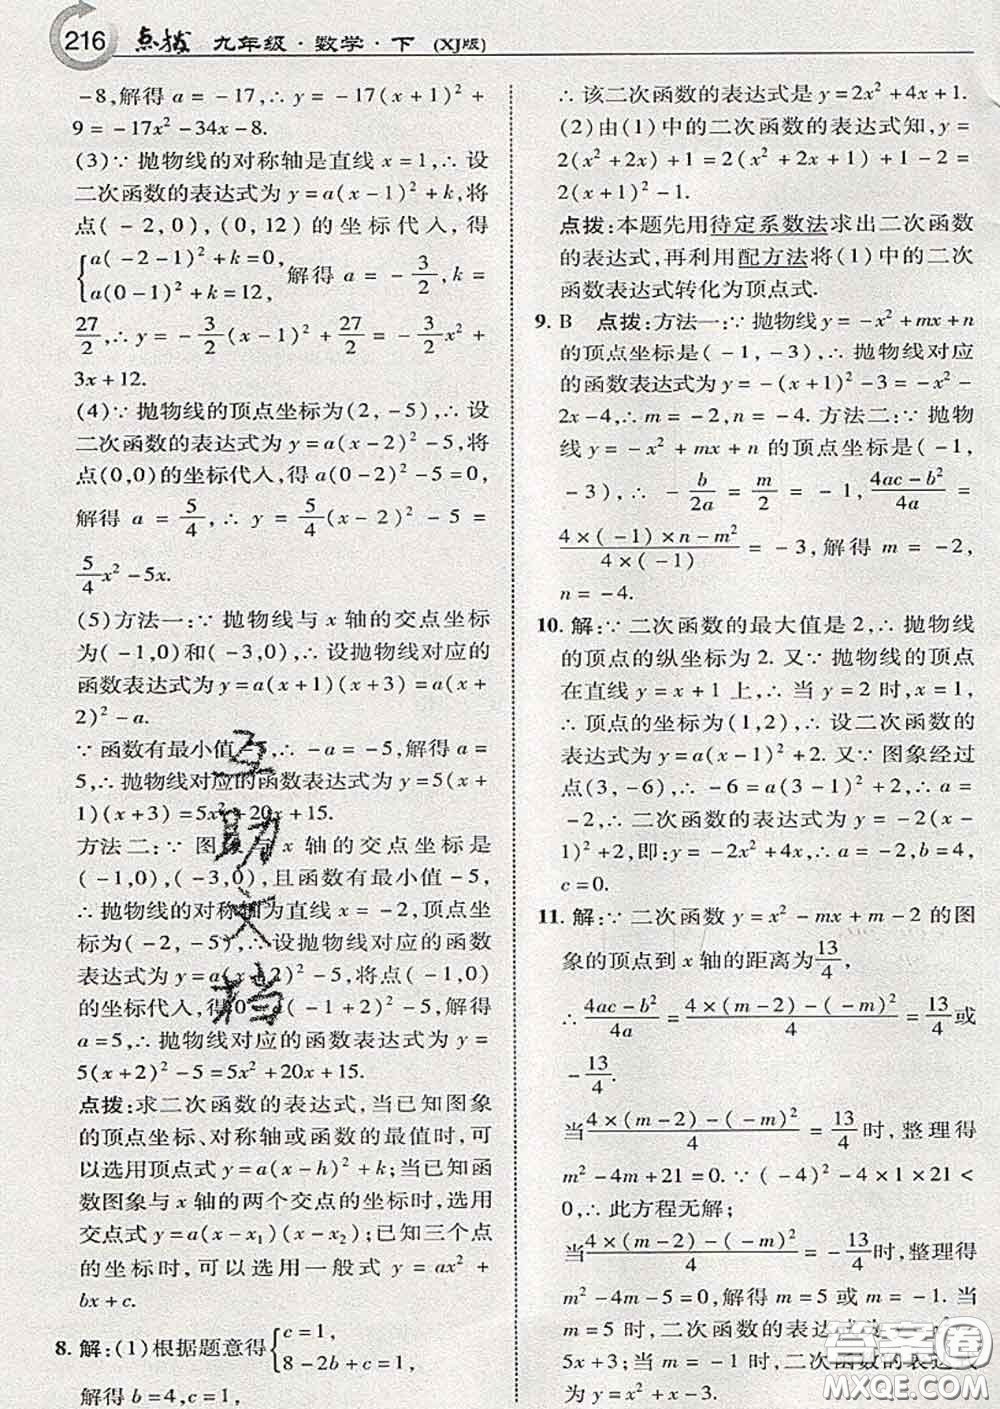 216 点拨 九年级·数学·下 (XJ版)
-8,解得 a = -17,∴ y = -17(x+1)² +
9 = -17x² -34x -8.
(3)∵ 抛物线的对称轴是直线 x = 1,∴ 设
二次函数的表达式为 y = a(x-1)² + k,将
点(-2,0),(0,12)的坐标代入,得
{a(-2-1)² + k = 0, a(0-1)² + k = 12, 解得 a = -3/2, k =
27/2,∴ y = -3/2(x-1)² + 27/2 = -3/2x² +
3x + 12.
(4)∵ 抛物线的顶点坐标为(2,-5),∴ 设
二次函数的表达式为 y = a(x-2)² -5,将
点(0,0)的坐标代入,得 a(0-2)² -5 = 0,
解得 a = 5/4,∴ y = 5/4(x-2)² -5 =
5/4x² -5x.
(5)方法一:∵ 抛物线与 x 轴的交点坐标
为(-1,0)和(-3,0),∴ 设抛物线对应的
函数表达式为 y = a(x+1)(x+3) = a(x+
2)² - a.
∵ 函数有最小值 ∴ -a = -5,解得 a =
5,∴ 抛物线对应的函数表达式为 y = 5(x+
1)(x+3) = 5x² + 20x + 15.
方法二:∵ 图 与 x 轴的交点坐标是
(-1,0),(-3,0),且函数有最小值 -5,
∴ 抛物线的对称轴为直线 x = -2,顶点坐
标为(-2,-5),∴ 设抛物线对应的函数
表达式为 y = a(x+2)² -5,将点(-1,0)
的坐标代入,得 0 = (-1+2)² -5,解得
a = 5,∴ 抛物线对应的函数表达式为 y =
5(x+2)² -5 = 5x² + 20x + 15.
点拨:求二次函数的表达式,当已知图象
的顶点坐标、对称轴或函数的最值时,可
以选用顶点式 y = a(x-h)² + k;当已知函
数图象与 x 轴的两个交点的坐标时,选用
交点式 y = a(x-x₁)(x-x₂);已知三个点
的坐标时,可以选用一般式 y = ax² +
bx + c.
8. 解:(1)根据题意得{c = 1, 8-2b+c = 1,
解得 b = 4,c = 1,
∴ 该二次函数的表达式是 y = 2x² + 4x + 1.
(2)由(1)中的二次函数的表达式知,y =
2(x² + 2x) + 1 = 2(x² + 2x + 1) + 1 - 2 =
2(x+1)² -1.
点拨:本题先用待定系数法求出二次函数
的表达式,再利用配方法将(1)中的二次
函数表达式转化为顶点式.
9. B 点拨:方法一:∵ 抛物线 y = -x² + mx + n
的顶点坐标是(-1,-3),∴ 抛物线对应
的函数表达式为 y = -(x+1)² -3 = -x² -
2x-4,∴ m = -2,n = -4. 方法二:∵ 抛物
线 y = -x² + mx + n 的顶点坐标是(-1,
-3),∴ -b/2a = m/2 = -1, (4ac-b²)/4a =
(4×(-1)×n-m²)/(4×(-1)) = -3,解得 m = -2,
n = -4.
10. 解:∵ 二次函数的最大值是 2,∴ 抛物线
的顶点的纵坐标为 2. 又∵ 抛物线的顶点
在直线 y = x + 1 上,∴ 当 y = 2 时,x = 1,
∴ 顶点的坐标为(1,2),∴ 设二次函数的
表达式为 y = a(x-1)² + 2. 又∵ 图象经过
点(3,-6),∴ -6 = a(3-1)² + 2,∴ a =
-2,∴ 二次函数的表达式为 y = -2(x-
1)² + 2,即:y = -2x² + 4x,∴ a = -2,b = 4,
c = 0.
11. 解:∵ 二次函数 y = x² - mx + m - 2 的图
象的顶点到 x 轴的距离为13/4,
∴ (4ac-b²)/4a = (4×(m-2)-(-m)²)/4 = 13/4或
-13/4.
当(4×(m-2)-(-m)²)/4 = 13/4时,整理得
m² -4m + 21 = 0. ∵ (-4)² -4×1×21 <
0,∴ 此方程无解;
当(4×(m-2)-(-m)²)/4 = -13/4时,整理得
m² -4m -5 = 0,解得 m = 5 或 m = -1. 当
m = 5 时,二次函数的表达式为 y = x² -
5x + 3;当 m = -1 时,二次函数的表达式
为 y = x² + x - 3.
互助文档
答案圈
MXQE.COM